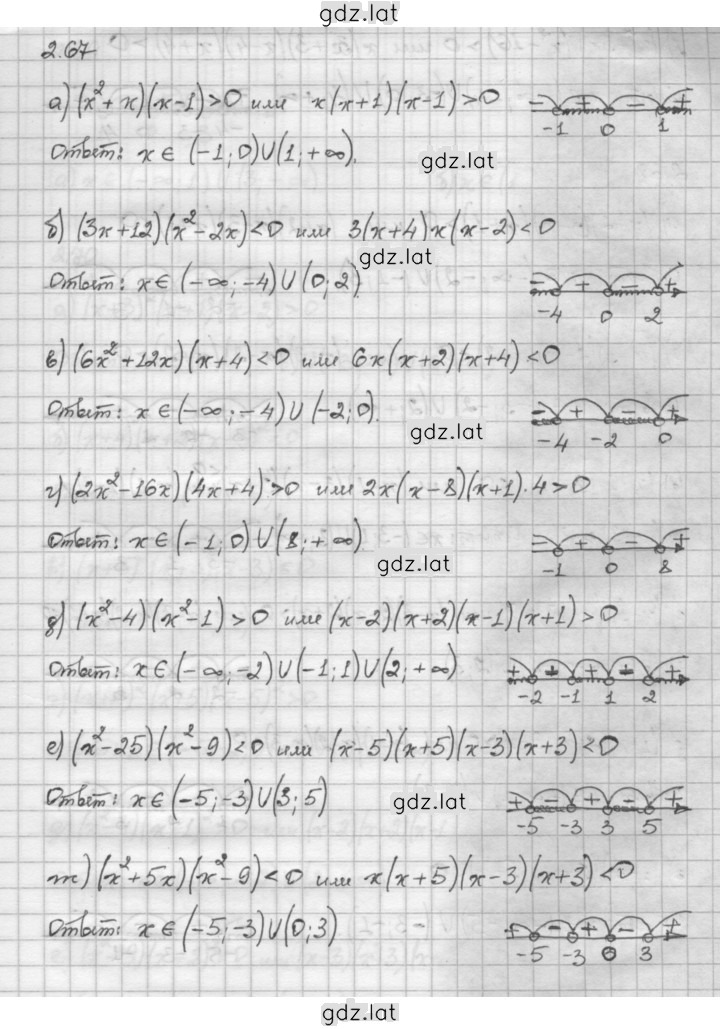 gdz.lat
2.67
а) (x²+x)(x-1)>0 или x(x+1)(x-1)>0
- + - +
-1 0 1
Ответ: x∈(-1;0)∪(1;+∞).
gdz.lat
б) (3x+12)(x²-2x)<0 или 3(x+4)x(x-2)<0
gdz.lat
Ответ: x∈(-∞;-4)∪(0;2)
- + - +
-4 0 2
в) (6x²+12x)(x+4)<0 или 6x(x+2)(x+4)<0
Ответ: x∈(-∞;-4)∪(-2;0).
- + - +
-4 -2 0
gdz.lat
г) (2x²-16x)(4x+4)>0 или 2x(x-8)(x+1)·4>0
Ответ: x∈(-1;0)∪(8;+∞)
- + - +
-1 0 8
gdz.lat
д) (x²-4)(x²-1)>0 или (x-2)(x+2)(x-1)(x+1)>0
Ответ: x∈(-∞;-2)∪(-1;1)∪(2;+∞)
+ - + - +
-2 -1 1 2
е) (x²-25)(x²-9)<0 или (x-5)(x+5)(x-3)(x+3)<0
Ответ: x∈(-5;-3)∪(3;5)
gdz.lat
+ - + - +
-5 -3 3 5
ж) (x²+5x)(x²-9)<0 или x(x+5)(x-3)(x+3)<0
Ответ: x∈(-5;-3)∪(0;3)
+ - + - +
-5 -3 0 3
gdz.lat